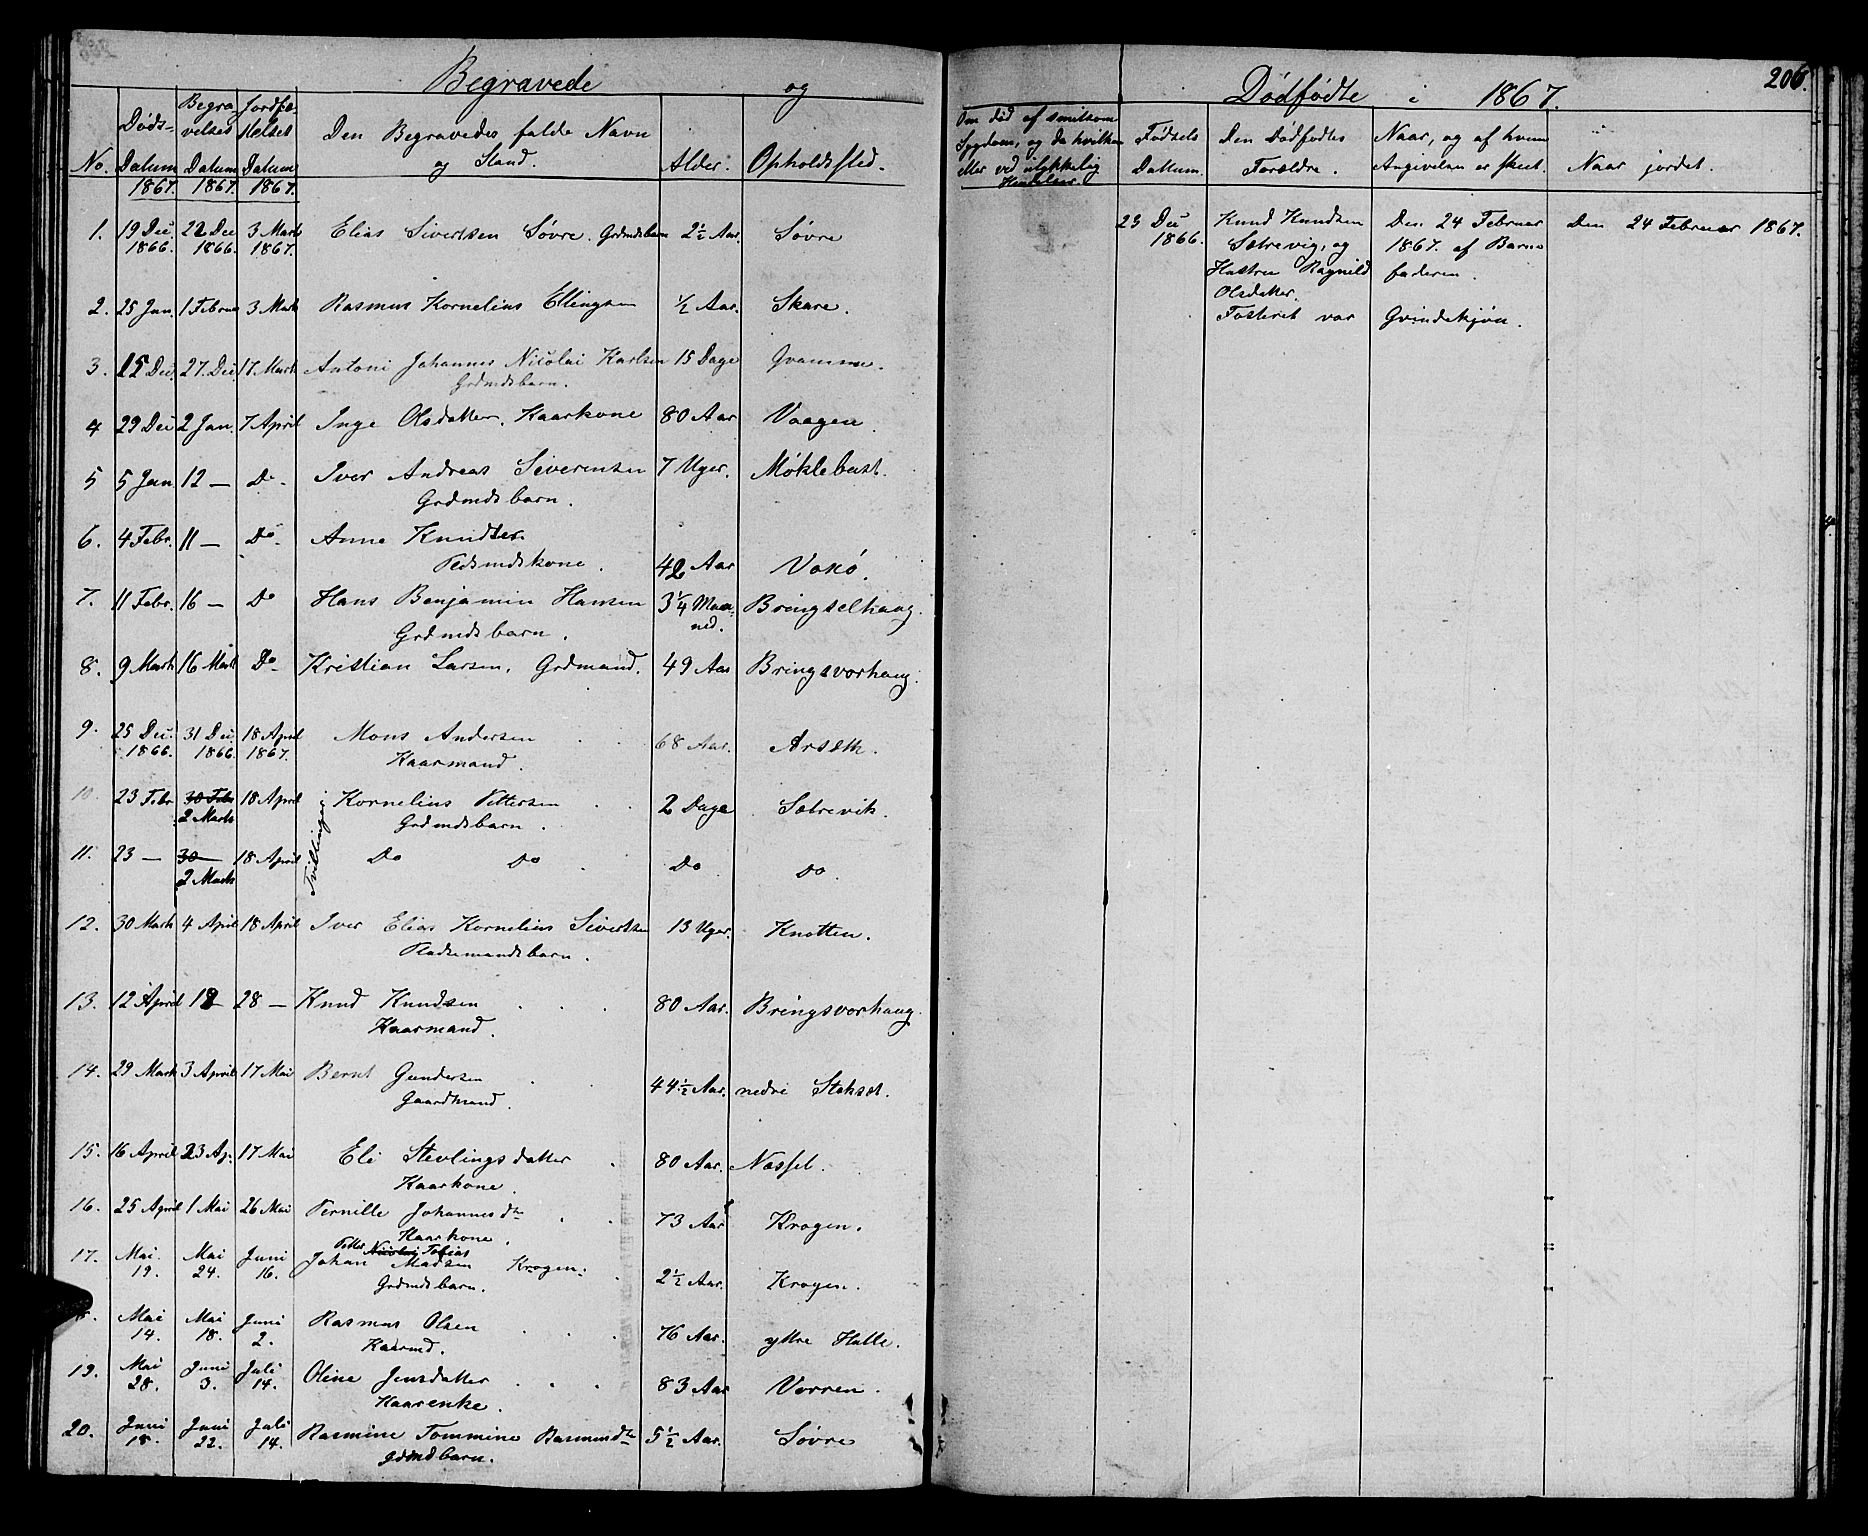 Begravede og
No.
Døds-
Datum
1867.
Begra
velses
Datum
1867.
Jordfæ
stelses
Datum
1867.
Den Begravedes fulde Navn
og Stand.
Alder.
Opholdssted.
1. 19 Dec 1866. 22 Dec 1866. 3 Marts 1867. Elias Sivertsen Søvre. Grdmdsbarn 2½ Aar. Søvre
2. 25 Jan. 1 Februar 3 Marts Rasmus Kornelius Ellingsen ½ Aar. Skare.
3. 15 Dec. 27. Dec. 17 Marts Antoni Johannes Nicolai Karlsen 15 Dage Gvamme.
Grdmdsbarn.
4 29 Dec 2 Jan. 7 April Inge Olsdatter. Kaarkone 80 Aar Vaagen.
5 5 Jan 12 — Do - Iver Andreas Severinsen 7 Uger. Møklebust.
Grdmdsbarn.
6. 4 Febr. 11 — Do - Anne Knudtsdr
Pldsmdskone. 42 Aar Vakø.
7. 11 Febr. 16 — Do Hans Benjamin Hansen 3¼ Maa-
ned. Bringselhaug.
Grdmdsbarn.
8. 9 Marts 16 Marts Do - Kristian Larsen, Grdmand. 49 Aar Bringsvorhaug.
9. 25 Dec. 1866. 31 Dec 1866. 18 April 1867. Mons Andersen 68 Aar. Arseth.
Kaarmand.
10. 23 Febr 30 Febr 2 Marts 18 April Tvillinger Kornelius Pettersen 2 Dage Sætrevik.
Grdmdsbarn.
11. 23 — 30 — 2 Marts 18 April Do Do Do Do.
12. 30 Marts 4 April 18 April Iver Elias Kornelius Sivertsen 13 Uger. Knotten.
Pladsemandsbarn.
13. 12 April 18 — 28 — Knud Knudsen 80 Aar. Bringsvorhaug.
Kaarmand.
14. 29 Marts 3 April 17 Mai Bernt Gundersen 44½ Aar. nedre Stokset.
Gaardmand.
15. 16 April 23 Ap. 17 Mai Eli Stevlingsdatter 80 Aar. Næsset.
Kaarkone.
16. 25 April 1 Mai 26 Mai Pernille Johannesdtr 73 Aar Krogen.
Kaarkone.
Petter Nicolai Tobias
17. Mai. 19. Mai 24. Juni 16. Johan Madsen Krogen. 2½ Aar. Krogen.
Grdmdsbarn.
Mai 14. Mai 18. Juni 2. Rasmus Olsen 76 Aar. ytre Halle.
Kaarmd.
19. Mai 28. Juni 3. Juli 14. Oline Jensdatter 83 Aar Vorren.
Kaarenke.
20. Juni 18. Juni 22. Juli 14. Rasmine Tommine Rasmusdtr 5½ Aar. Søvre
Grdmdbarn.
Dødfødte i 1867. 206.
Om død af smitsom
Sygdom, og da hvilken
eller ved ulykkelig
Hændelser.
Fødsels
Dattum.
Den Dødfødtes
Forældre.
Naar, og af hvem
Angivelsen er skeet.
Naar jordet.
23 Dec
1866.
Knud Knudsen
Sætrevig, og
Hustru Ragnild
Olsdatter.
Fosteret var
Den 24 Februar
1867. af Barne
faderen.
Qvindekjøn.
Den 24 Februar 1867.